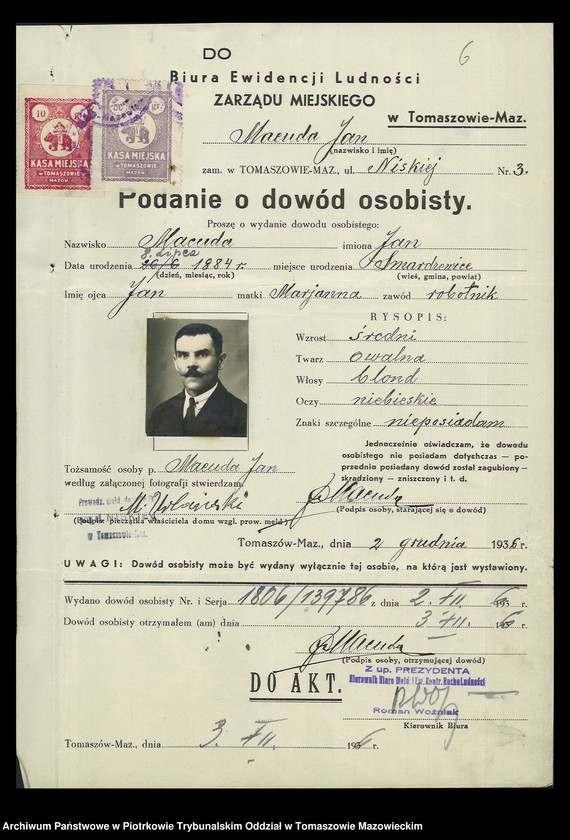 6
DO
Biura Ewidencji Ludności
ZARZĄDU MIEJSKIEGO
w Tomaszowie-Maz.
10 gr.
KASA MIEJSKA
W TOMASZOWIE
MAZOW.
50 gr.
KASA MIEJSKA
W TOMASZOWIE
MAZOW.
Macuda Jan
(nazwisko i imię)
zam. w TOMASZOWIE-MAZ., ul. Niskiej Nr. 3.
Podanie o dowód osobisty.
Proszę o wydanie dowodu osobistego:
Nazwisko Macuda imiona Jan
8 lipca
Data urodzenia 26/6 1884 r. miejsce urodzenia Smardzewice
(dzień, miesiąc, rok) (wieś, gmina, powiat)
Imię ojca Jan matki Marjanna zawód robotnik
RYSOPIS:
Wzrost średni
Twarz owalna
Włosy blond
Oczy niebieskie
Znaki szczególne nieposiadam
Jednocześnie oświadczam, że dowodu
osobistego nie posiadam dotychczas — po-
przednio posiadany dowód został zagubiony —
skradziony — zniszczony i t. d.
Tożsamość osoby p. Macuda Jan
według załączonej fotografji stwierdzam.
J Macuda
(Podpis osoby, starającej się o dowód)
(Podpis i pieczątka właściciela domu wzgl. prow. meld.)
w Tomaszowie-Maz.
Tomaszów-Maz., dnia 2 grudnia 1936 r.
UWAGI: Dowód osobisty może być wydany wyłącznie tej osobie, na którą jest wystawiony.
Wydano dowód osobisty Nr. i Serja 1806/139786 z dnia 2. XII. 1936 r.
Dowód osobisty otrzymałem (am) dnia 3 XII. 1936 r.
J Macuda
(Podpis osoby, otrzymującej dowód)
Z up. PREZYDENTA
Kierownik Biura Meld. i Ew. Kontr. Ruchu Ludności
DO AKT.
Roman Woźniak
Kierownik Biura
Tomaszów-Maz., dnia 3. XII. 1936 r.
Archiwum Państwowe w Piotrkowie Trybunalskim Oddział w Tomaszowie Mazowieckim